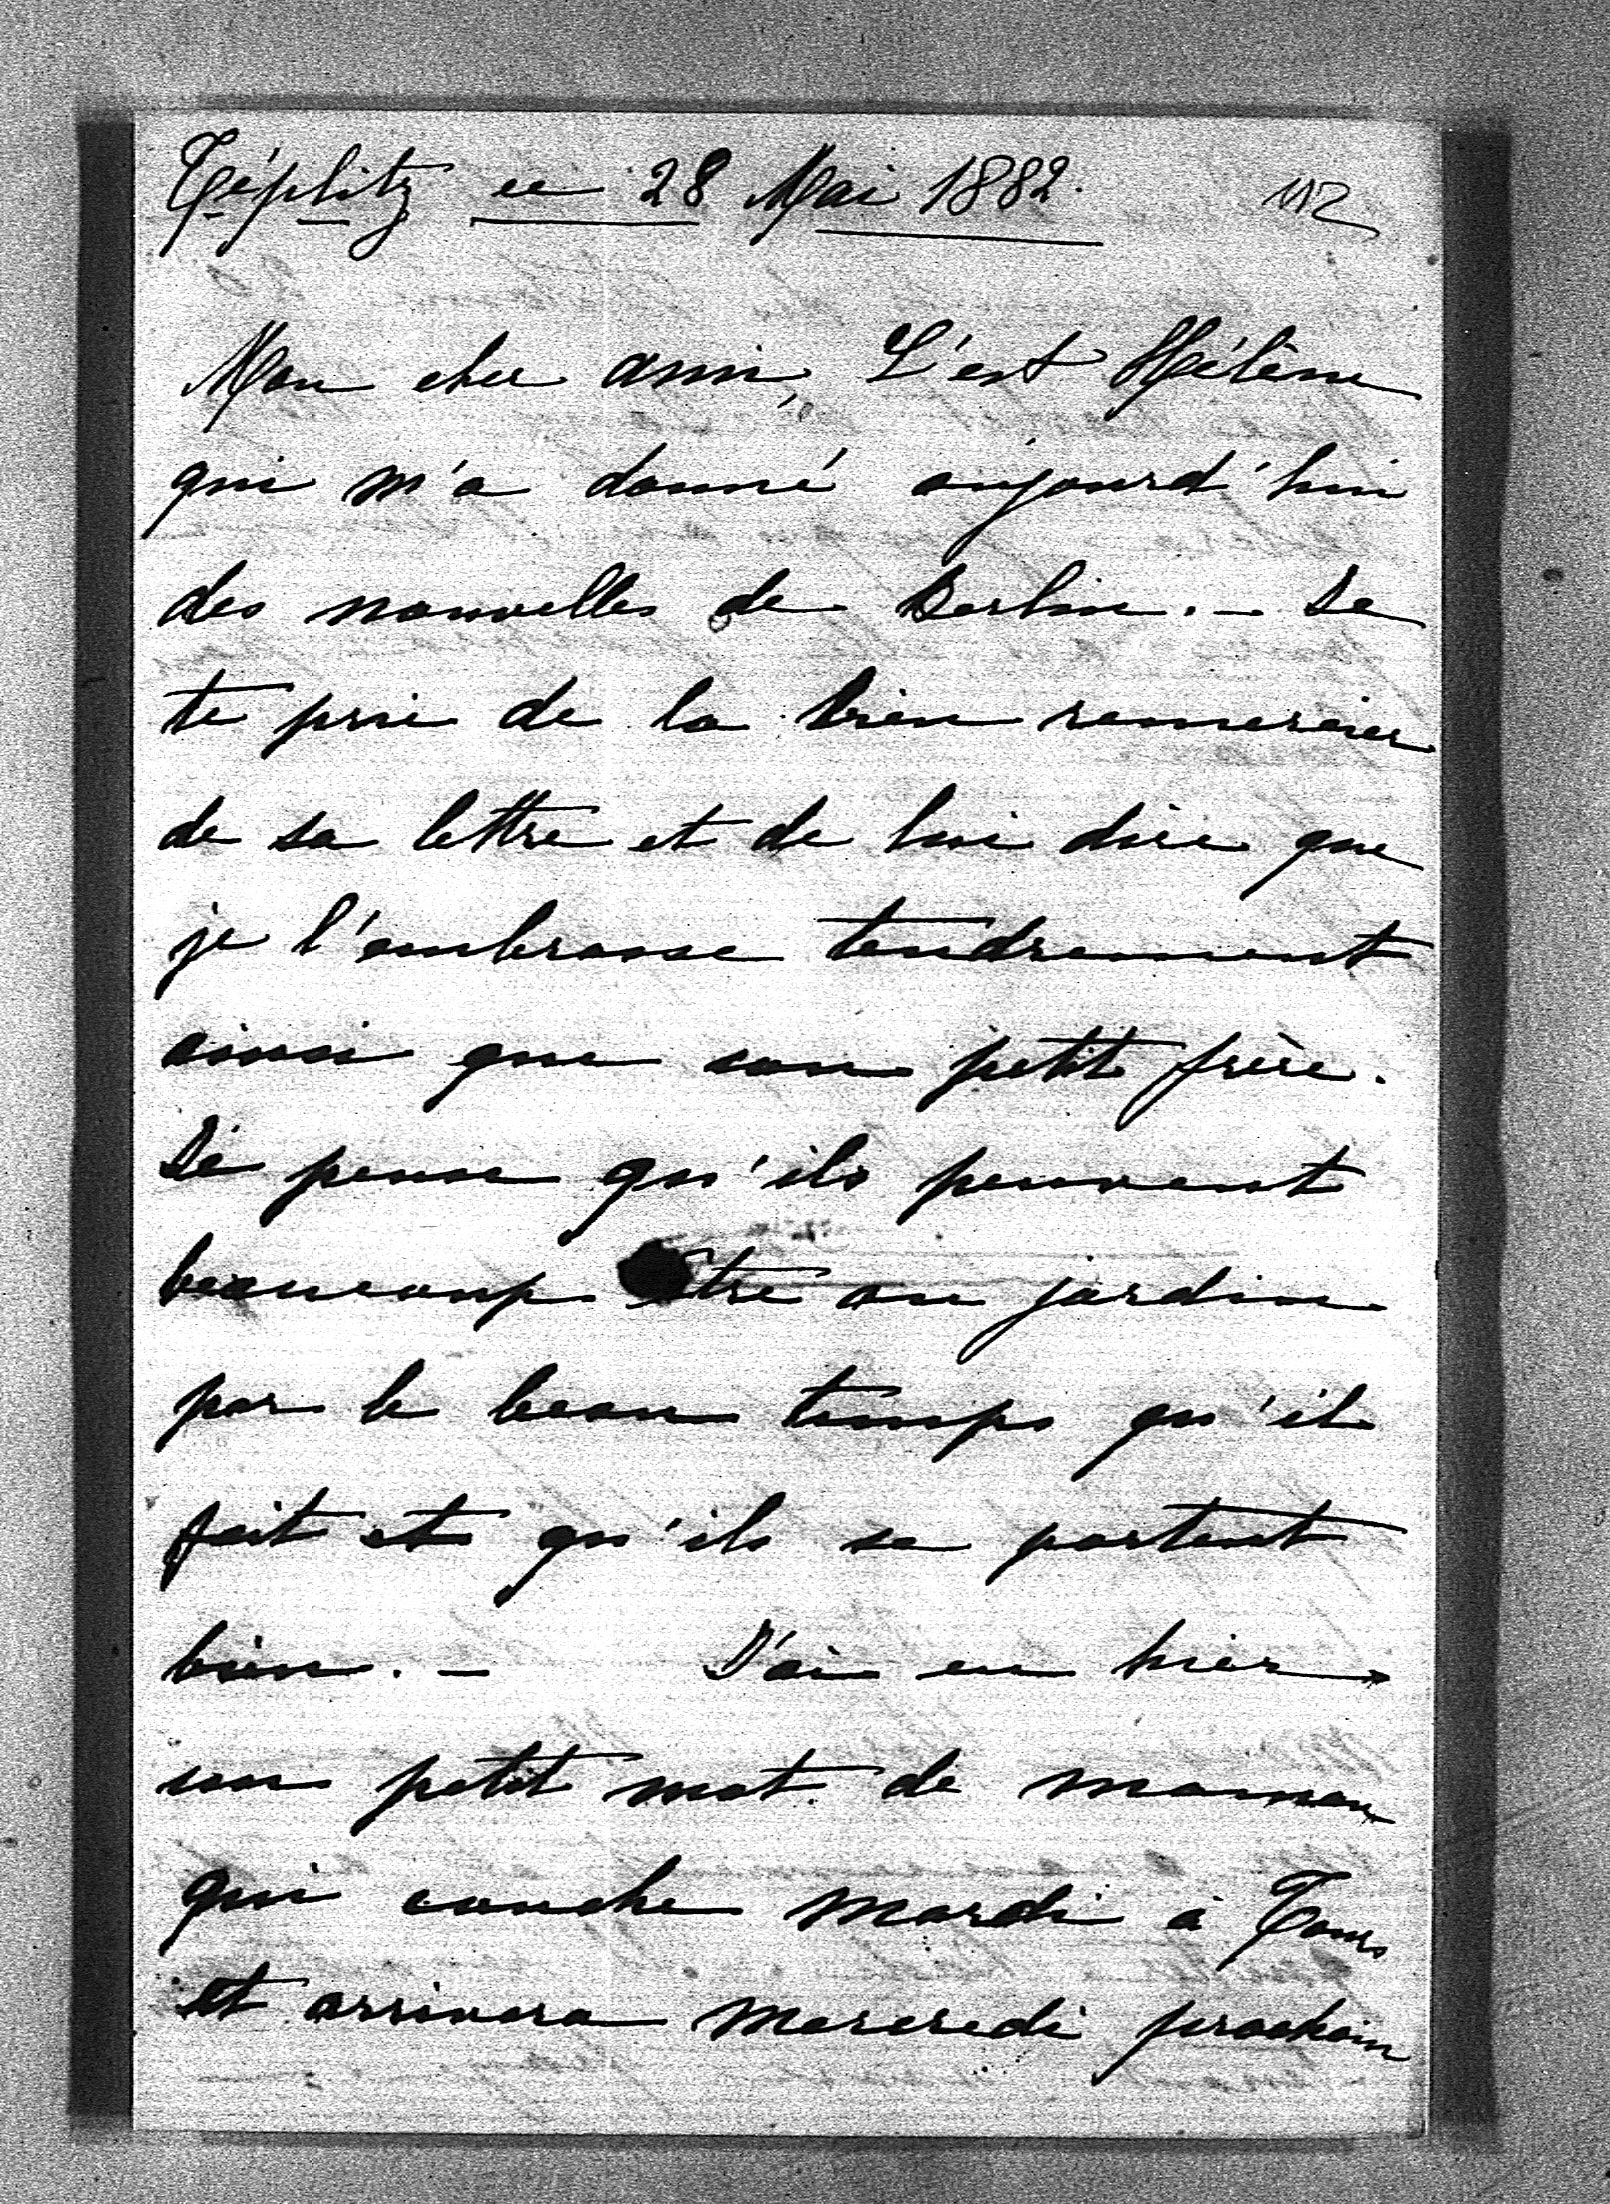 Téplitz ce 28 Mai 1882.
Mon cher ami, C'est Hélène
qui m'a donné aujourd'hui
des nouvelles de Berlin. – Je
te prie de la bien remercier
de sa lettre et de lui dire que
je l'embrasse tendrement
ainsi que son petit frère.
Je pense qu'ils peuvent
beaucoup être au jardin
par le beau temps qu'il
fait et qu'ils se portent
bien. – J'ai eu hier
un petit mot de maman
qui couche mardi à Tours
et arrivera mercredi prochain